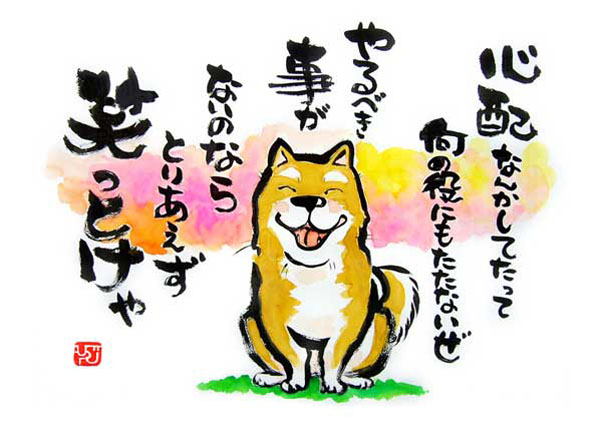 心配なんかしてたって
何の役にもたたないぜ
やるべき
事が
ないのなら
とりあえず
笑っとけや